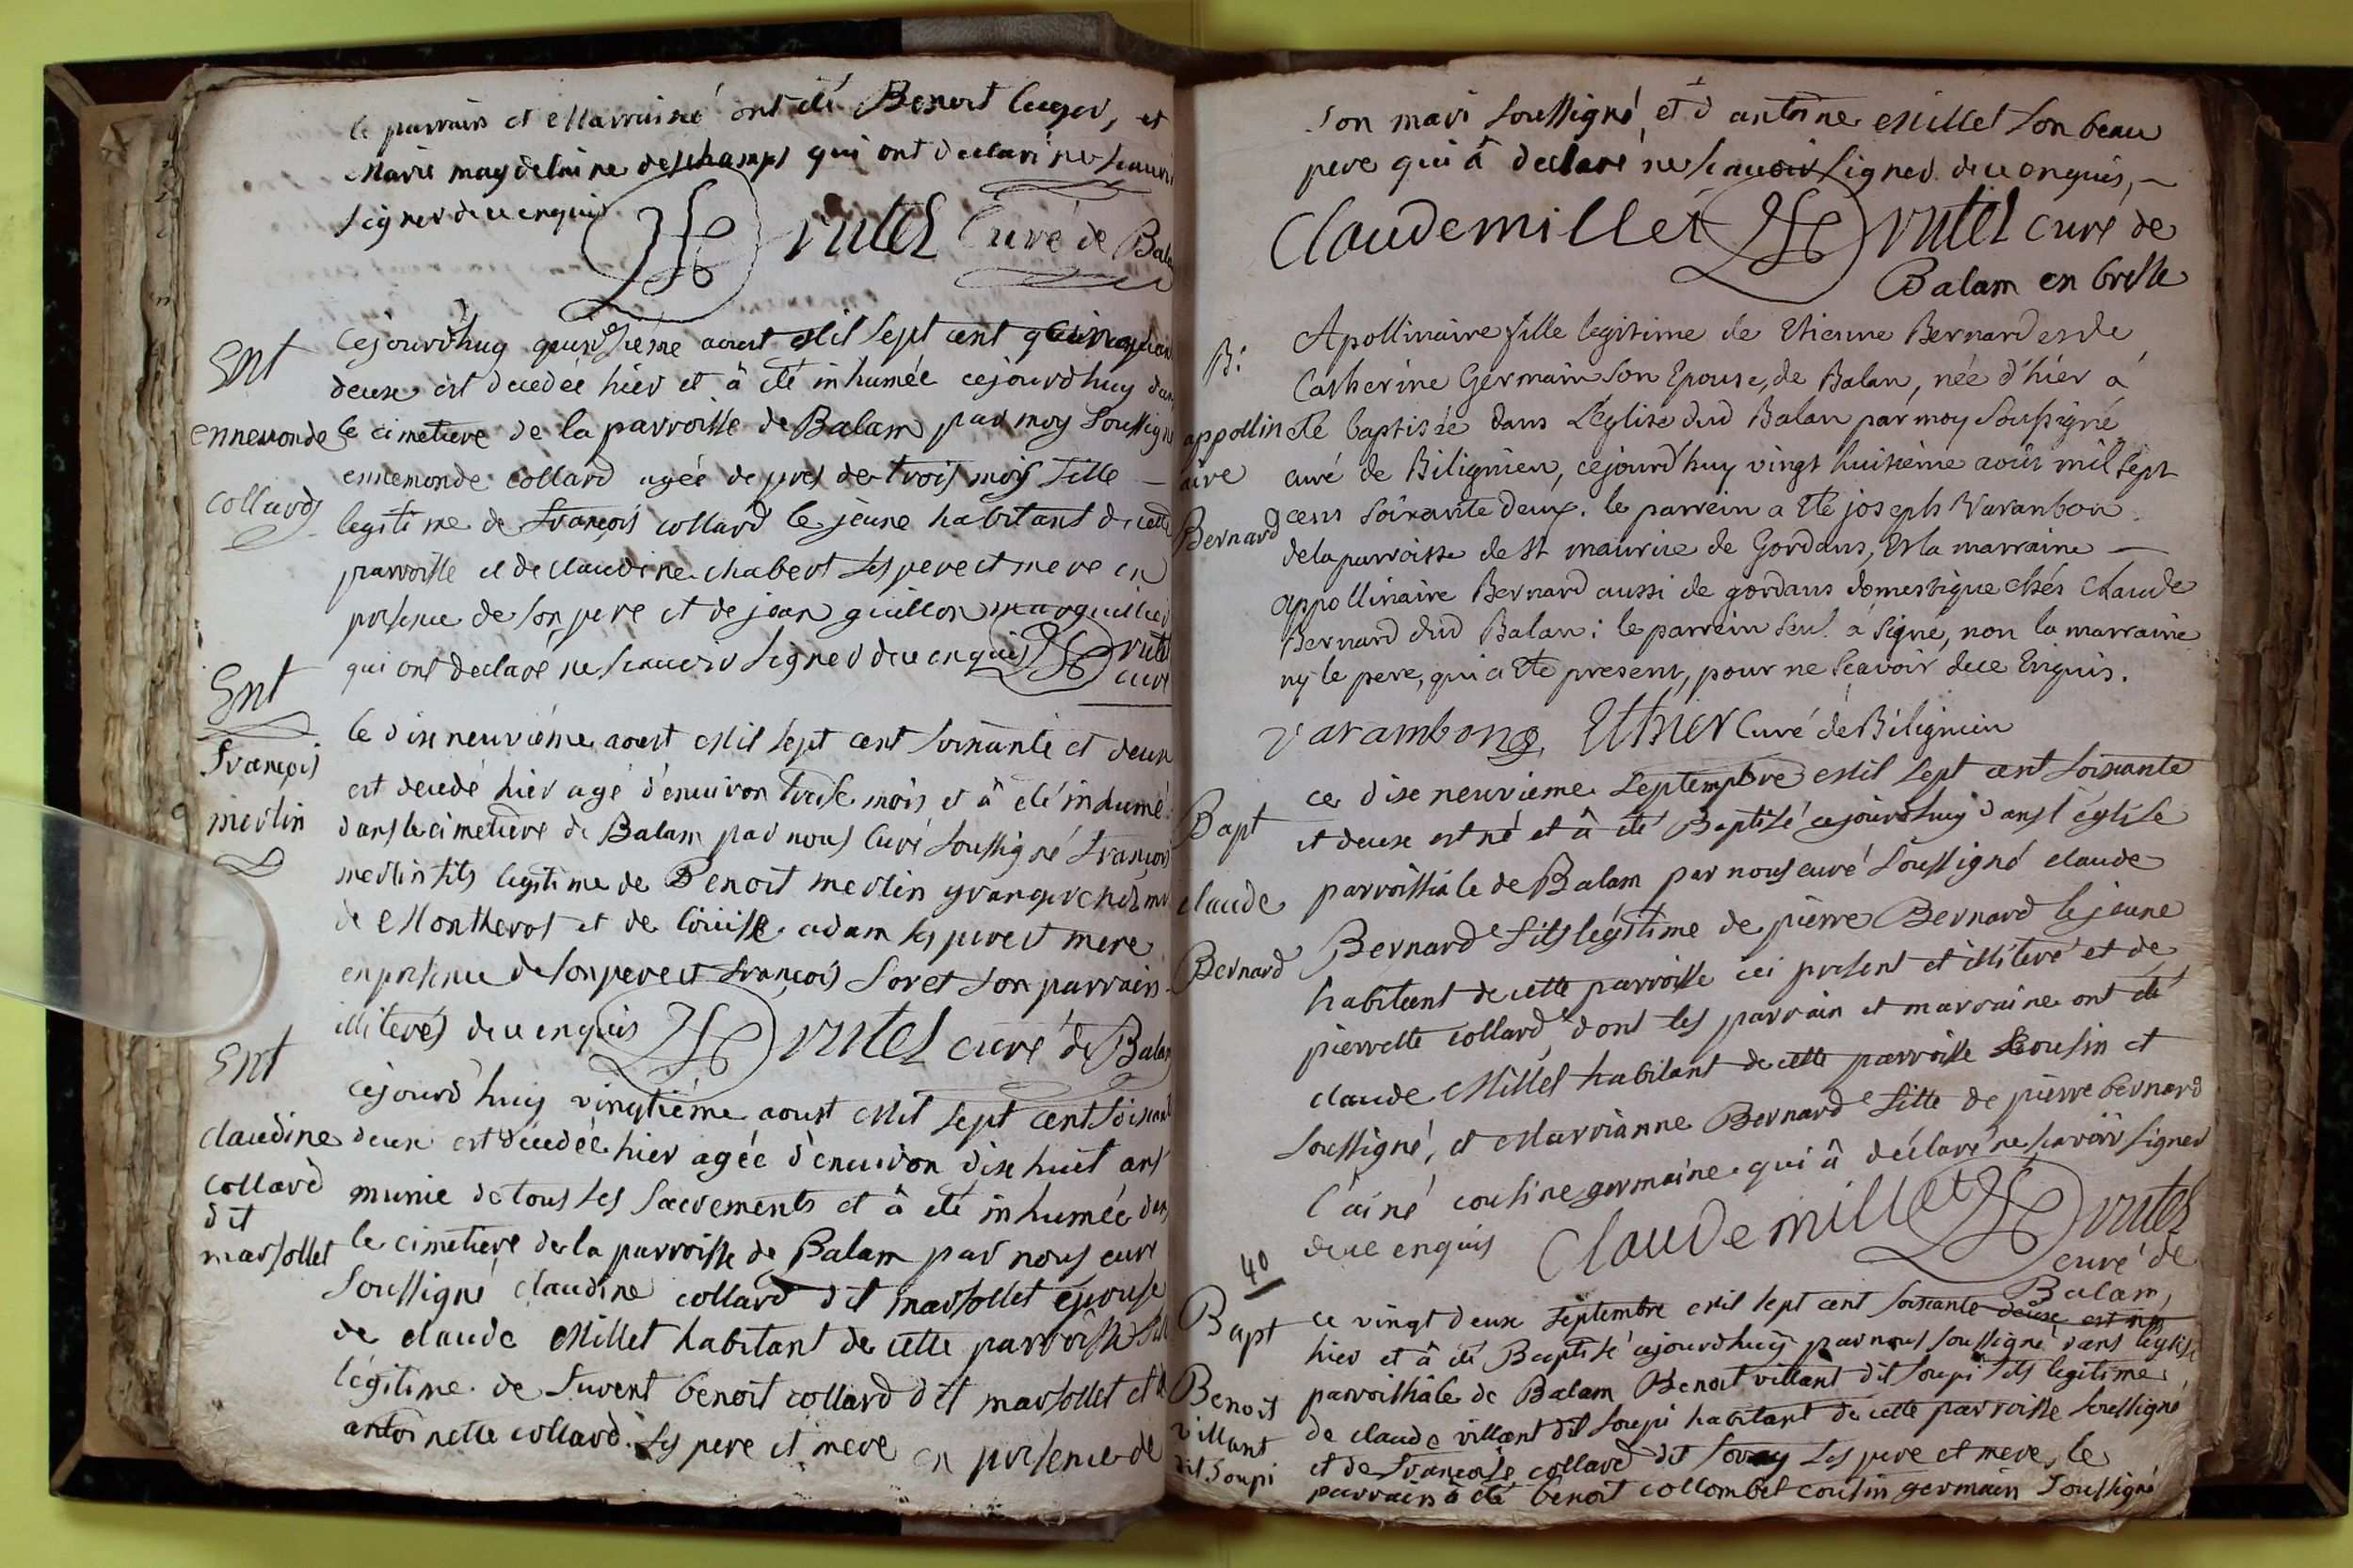 le parrain et Marraine ont été Benoit luger, et
Marie magdelaine deschamps qui ont declaré ne scauoir
signer de ce enquis rutel Curé de Balam
Ent
ennemonde
collard
Cejourd'huy quinzième aoust Mil sept cent
deux est decedée hier et â été inhumée cejourdhuy dans
le cimetiere de la parroisse de Balam par moy soussigné
ennemonde collard agée de pres de trois mois fille
legitime de françois collard le jeune habitant de cette
parroisse et de claudine chabert ses pere et mere en
presence de son pere et de jean guillon marguillier
qui ont declaré ne scauoir signer de ce enquis rutel
curé
Ent
françois
merlin
le dix neuvième aoust Mil sept cent soixante et deux
est decedé hier agé d'enuiron treise mois et â été inhumé
dans le cimetiere de Balam par nous Curé soussigné françois
merlin fils legitime de Benoit merlin granger chez mr
de Montherot et de loüise adam ses pere et mere
en presence de son pere et françois foret son parrain
illiterés de ce enquis rutel curé de Balam
Ent
claudine
collard
dit
marsollet
cejourd'huy vingtième aoust Mil sept cent soixante
deux est decedée hier agée d'enuiron dix huit ans
munie de tous ses sacrements et â été inhumée dans
le cimetiere de la parroisse de Balam par nous curé
soussigné claudine collard dit marsollet epouse
de claude Millet habitant de cette parroisse fille
légitime de fuvent benoit collard dit marsollet et d'
antoinette collard ses pere et mere en presence de
son mari soussigné, et d'antoine Millet son beau
pere qui â declaré ne scauoir signer de ce enquis,
Claude millet rutel curé de
Balam en bresse
B:
appollin
aire
Bernard
Apollinaire fille legitime de Etienne Bernard et de
Catherine Germain son Epouse, de Balan, née d'hier a
été baptisée dans L'Eglise dud Balan par moy soussigné
curé de Bilignieu, cejourd'huy vingt huitième août mil sept
cens soixante deux. le parrein a été joseph Varanbon
de la parroisse de St maurice de Gordans, et la marraine
appollinaire Bernard aussi de gordans domestique chés Claude
Bernard dud Balan: le parrein seul a signé, non la marraine
ny le pere, qui a été present, pour ne sçavoir de ce Enquis.
varambon Curé de Bilignieu
Bapt
claude
Bernard
ce dixe neuvieme septembre Mil sept cent soixante
et deux est né et â été Baptisé cejourdhuy dans l'église
parroissiale de Balam par nous curé soussigné claude
Bernard fils légitime de pierre Bernard le jeune
habitant de cette parroisse ici present et illiteré et de
pierrette collard dont les parrain et marraine ont été
claude Millet habitant de cette parroisse Cousin et
soussigné, et Marrianne Bernard fille de pierre bernard
l'ainé cousine germaine qui â déclaré ne savoir signer
de ce enquis Claude millet rutel
curé de
Balam,
40
Bapt
Benoit
villant
dit soupi
ce vingt deux septembre Mil sept cent soixante deux est né
hier et â été Baptisé cejourdhuy par nous soussigné dans l'église
parroissiale de Balam Benoit villant dit soupi fils legitime
de claude villant dit soupi habitant de cette parroisse soussigné
et de françoise collard dit foray ses pere et mere, le
parrain â été benoit collombet cousin germain soussigné